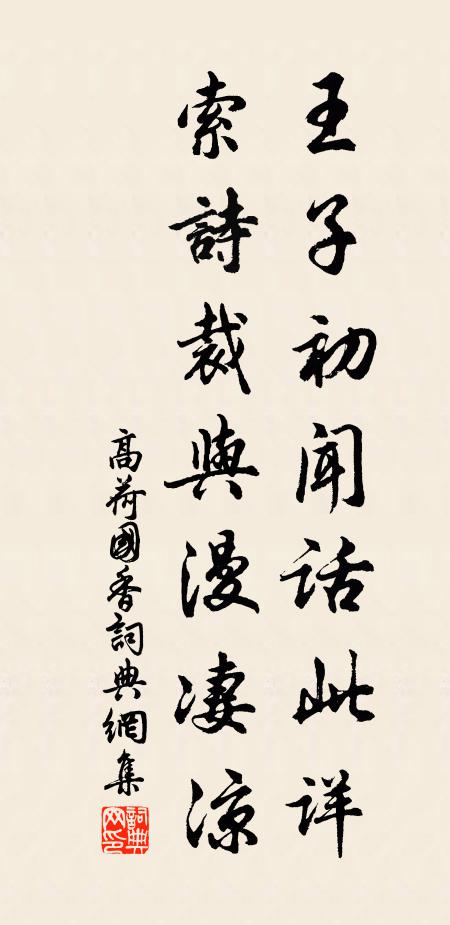 王子初闻话此详
索詩裁與漫凄凉
高荷國香詞典網集
詞典网印